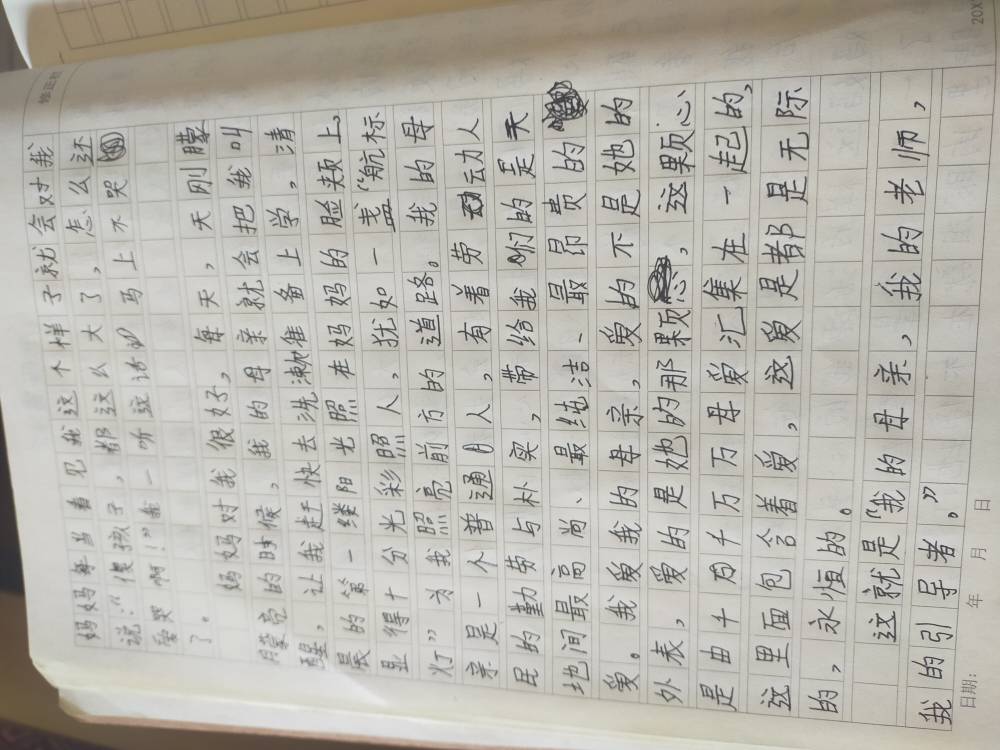 妈妈每当看见我这个样子就会对我
说:“傻孩子,都这么大了,怎么还
爱哭啊!”我一听这话马上不哭
了。
妈妈对我很好,每天,天刚朦
朦亮的时候,我的母亲就会把我叫
醒,让我赶快去洗漱准备上学,清
晨的第一缕阳光照在妈妈的脸颊上,
显得十分光彩照人,犹如一盏“航标
灯”为我照亮前方的道路。我的母
亲是一个普通人,有着劳动人
民的勤劳与朴实,带给我们的是天
地间最高尚、最纯洁、最昂贵的
爱。我爱我的母亲,爱的不是她的
外表,爱的是她的那颗心,这颗心
是由千千万万母爱汇集在一起的,
这里面包含着爱,这爱是都是无际
的,永恒的。
这就是“我的母亲,我的老师,
我的引导者。”
日期: 年 月 日
20X